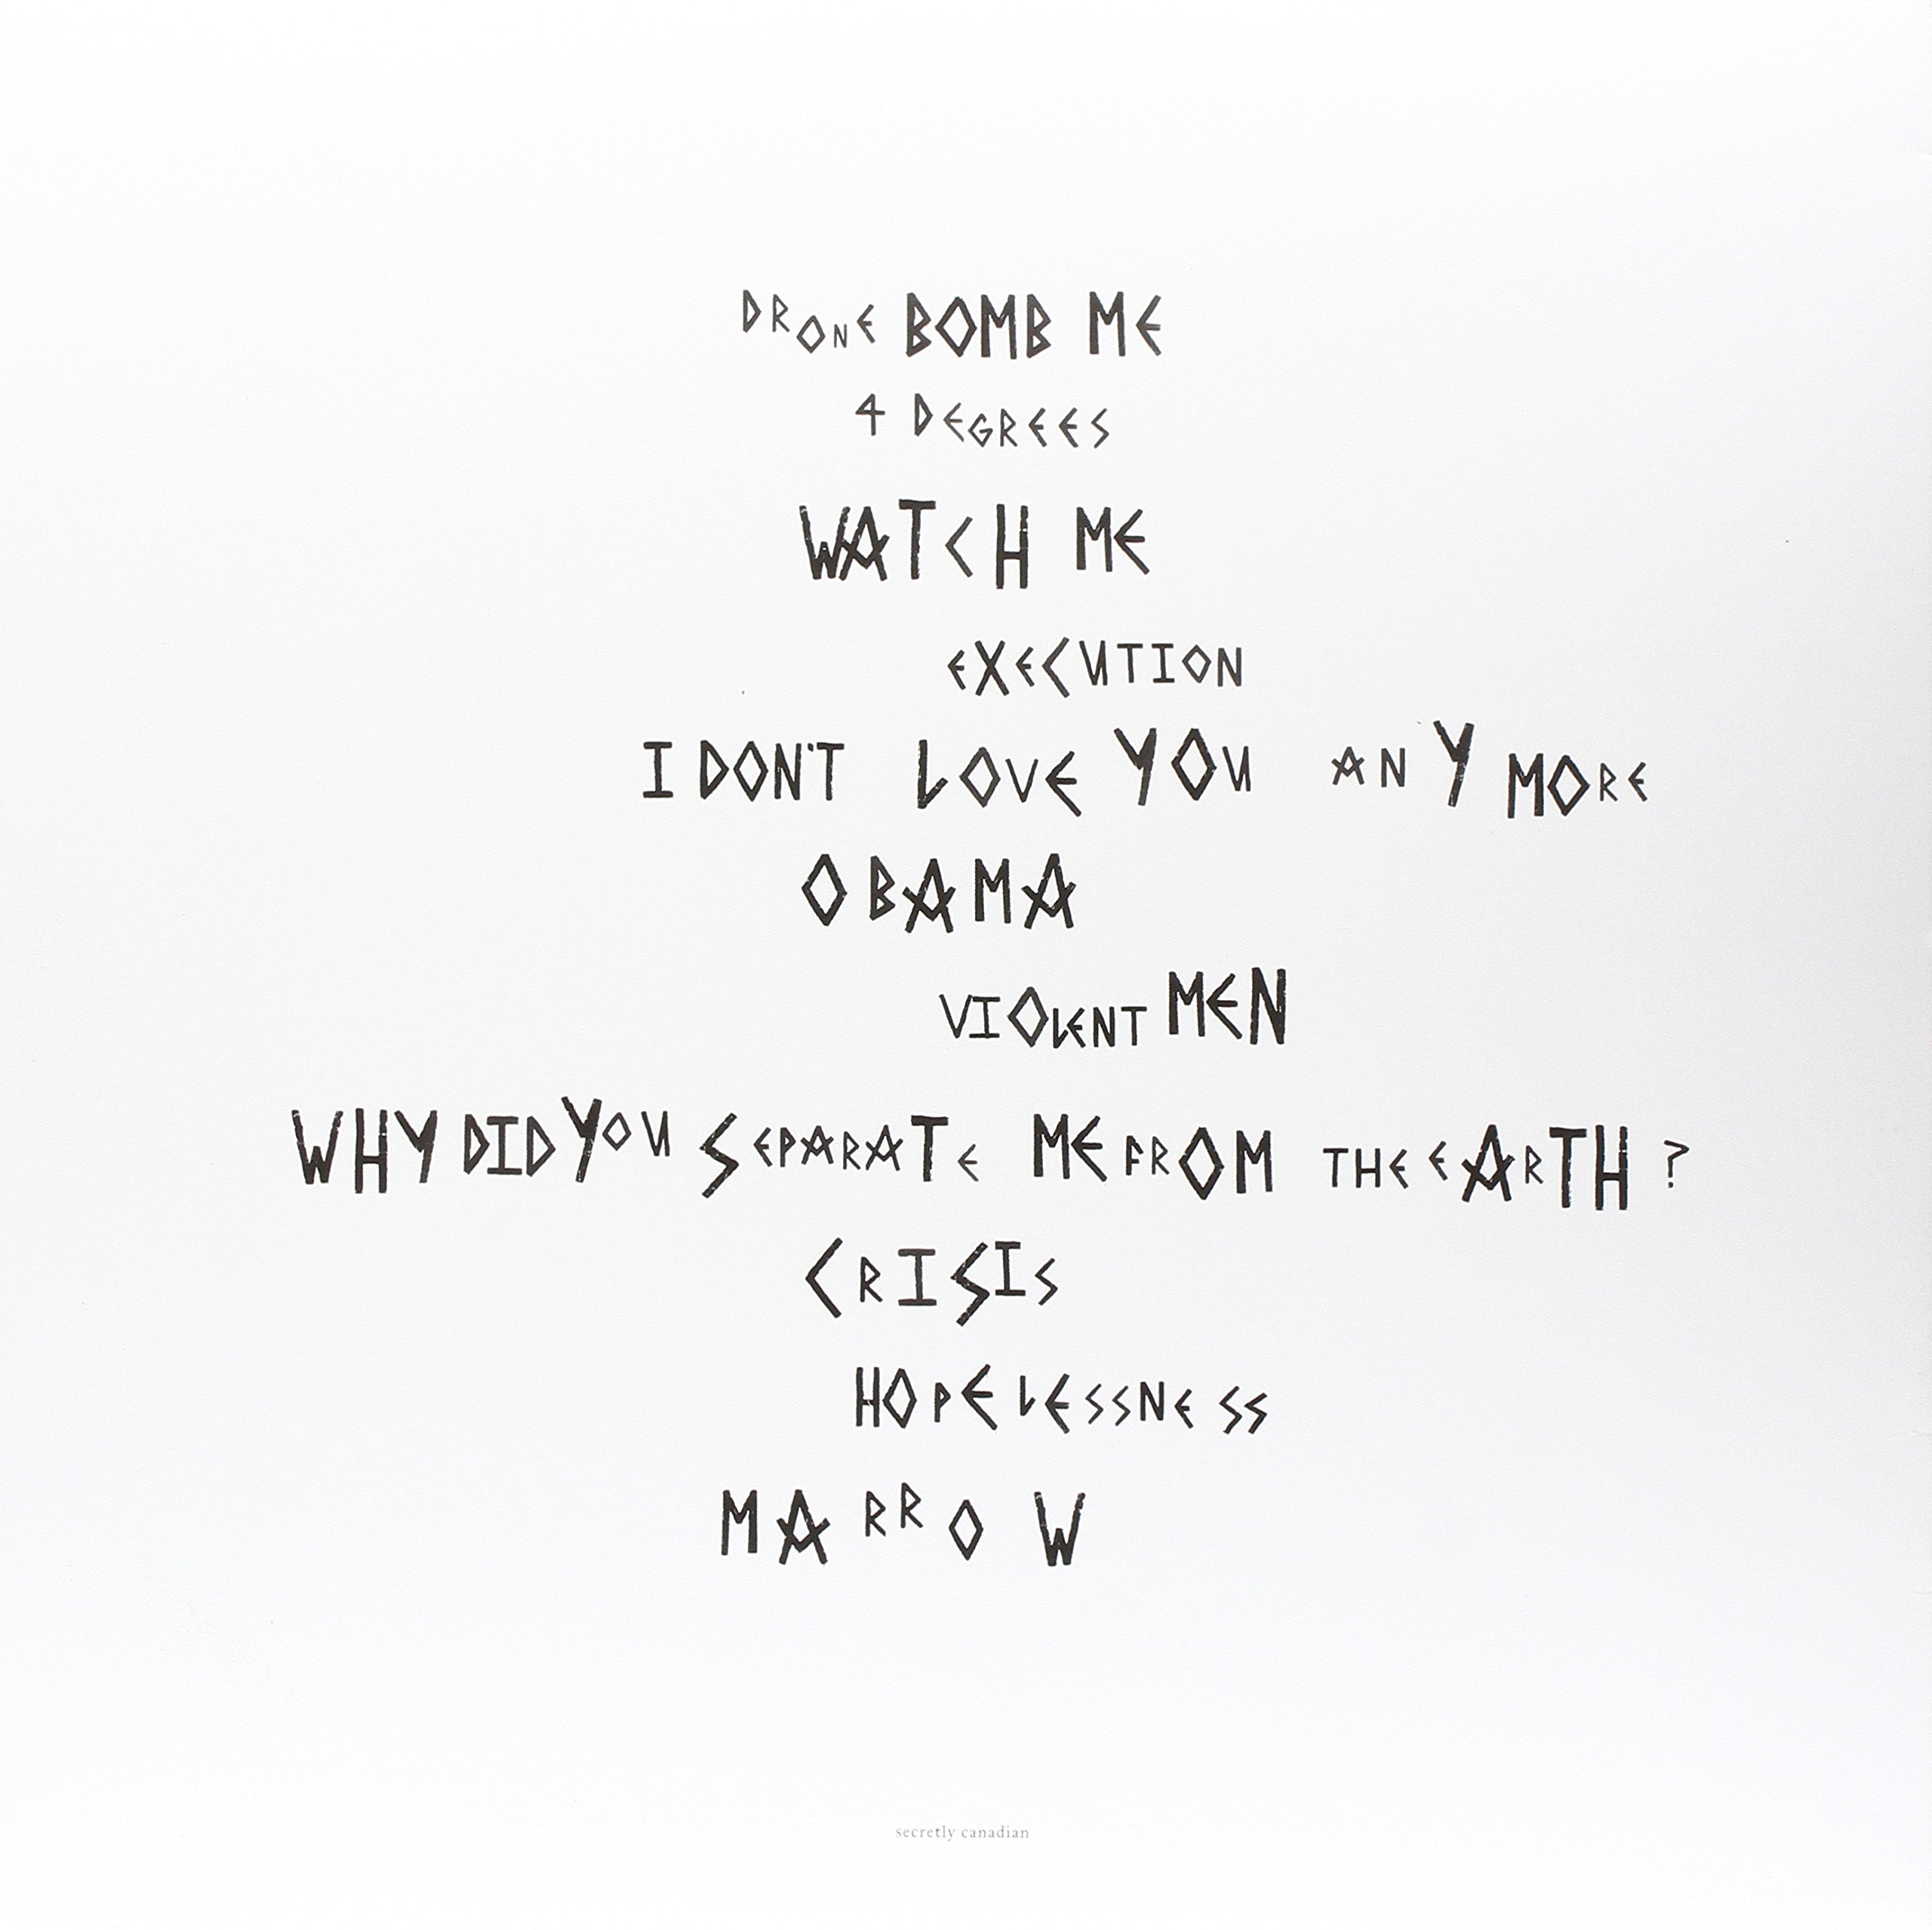 DRONE BOMB ME
4 DEGREES
WATCH ME
EXECUTION
I DON'T LOVE YOU ANYMORE
OBAMA
VIOLENT MEN
WHY DID YOU SEPARATE ME FROM THE EARTH?
CRISIS
HOPELESSNESS
MARROW
secretly canadian